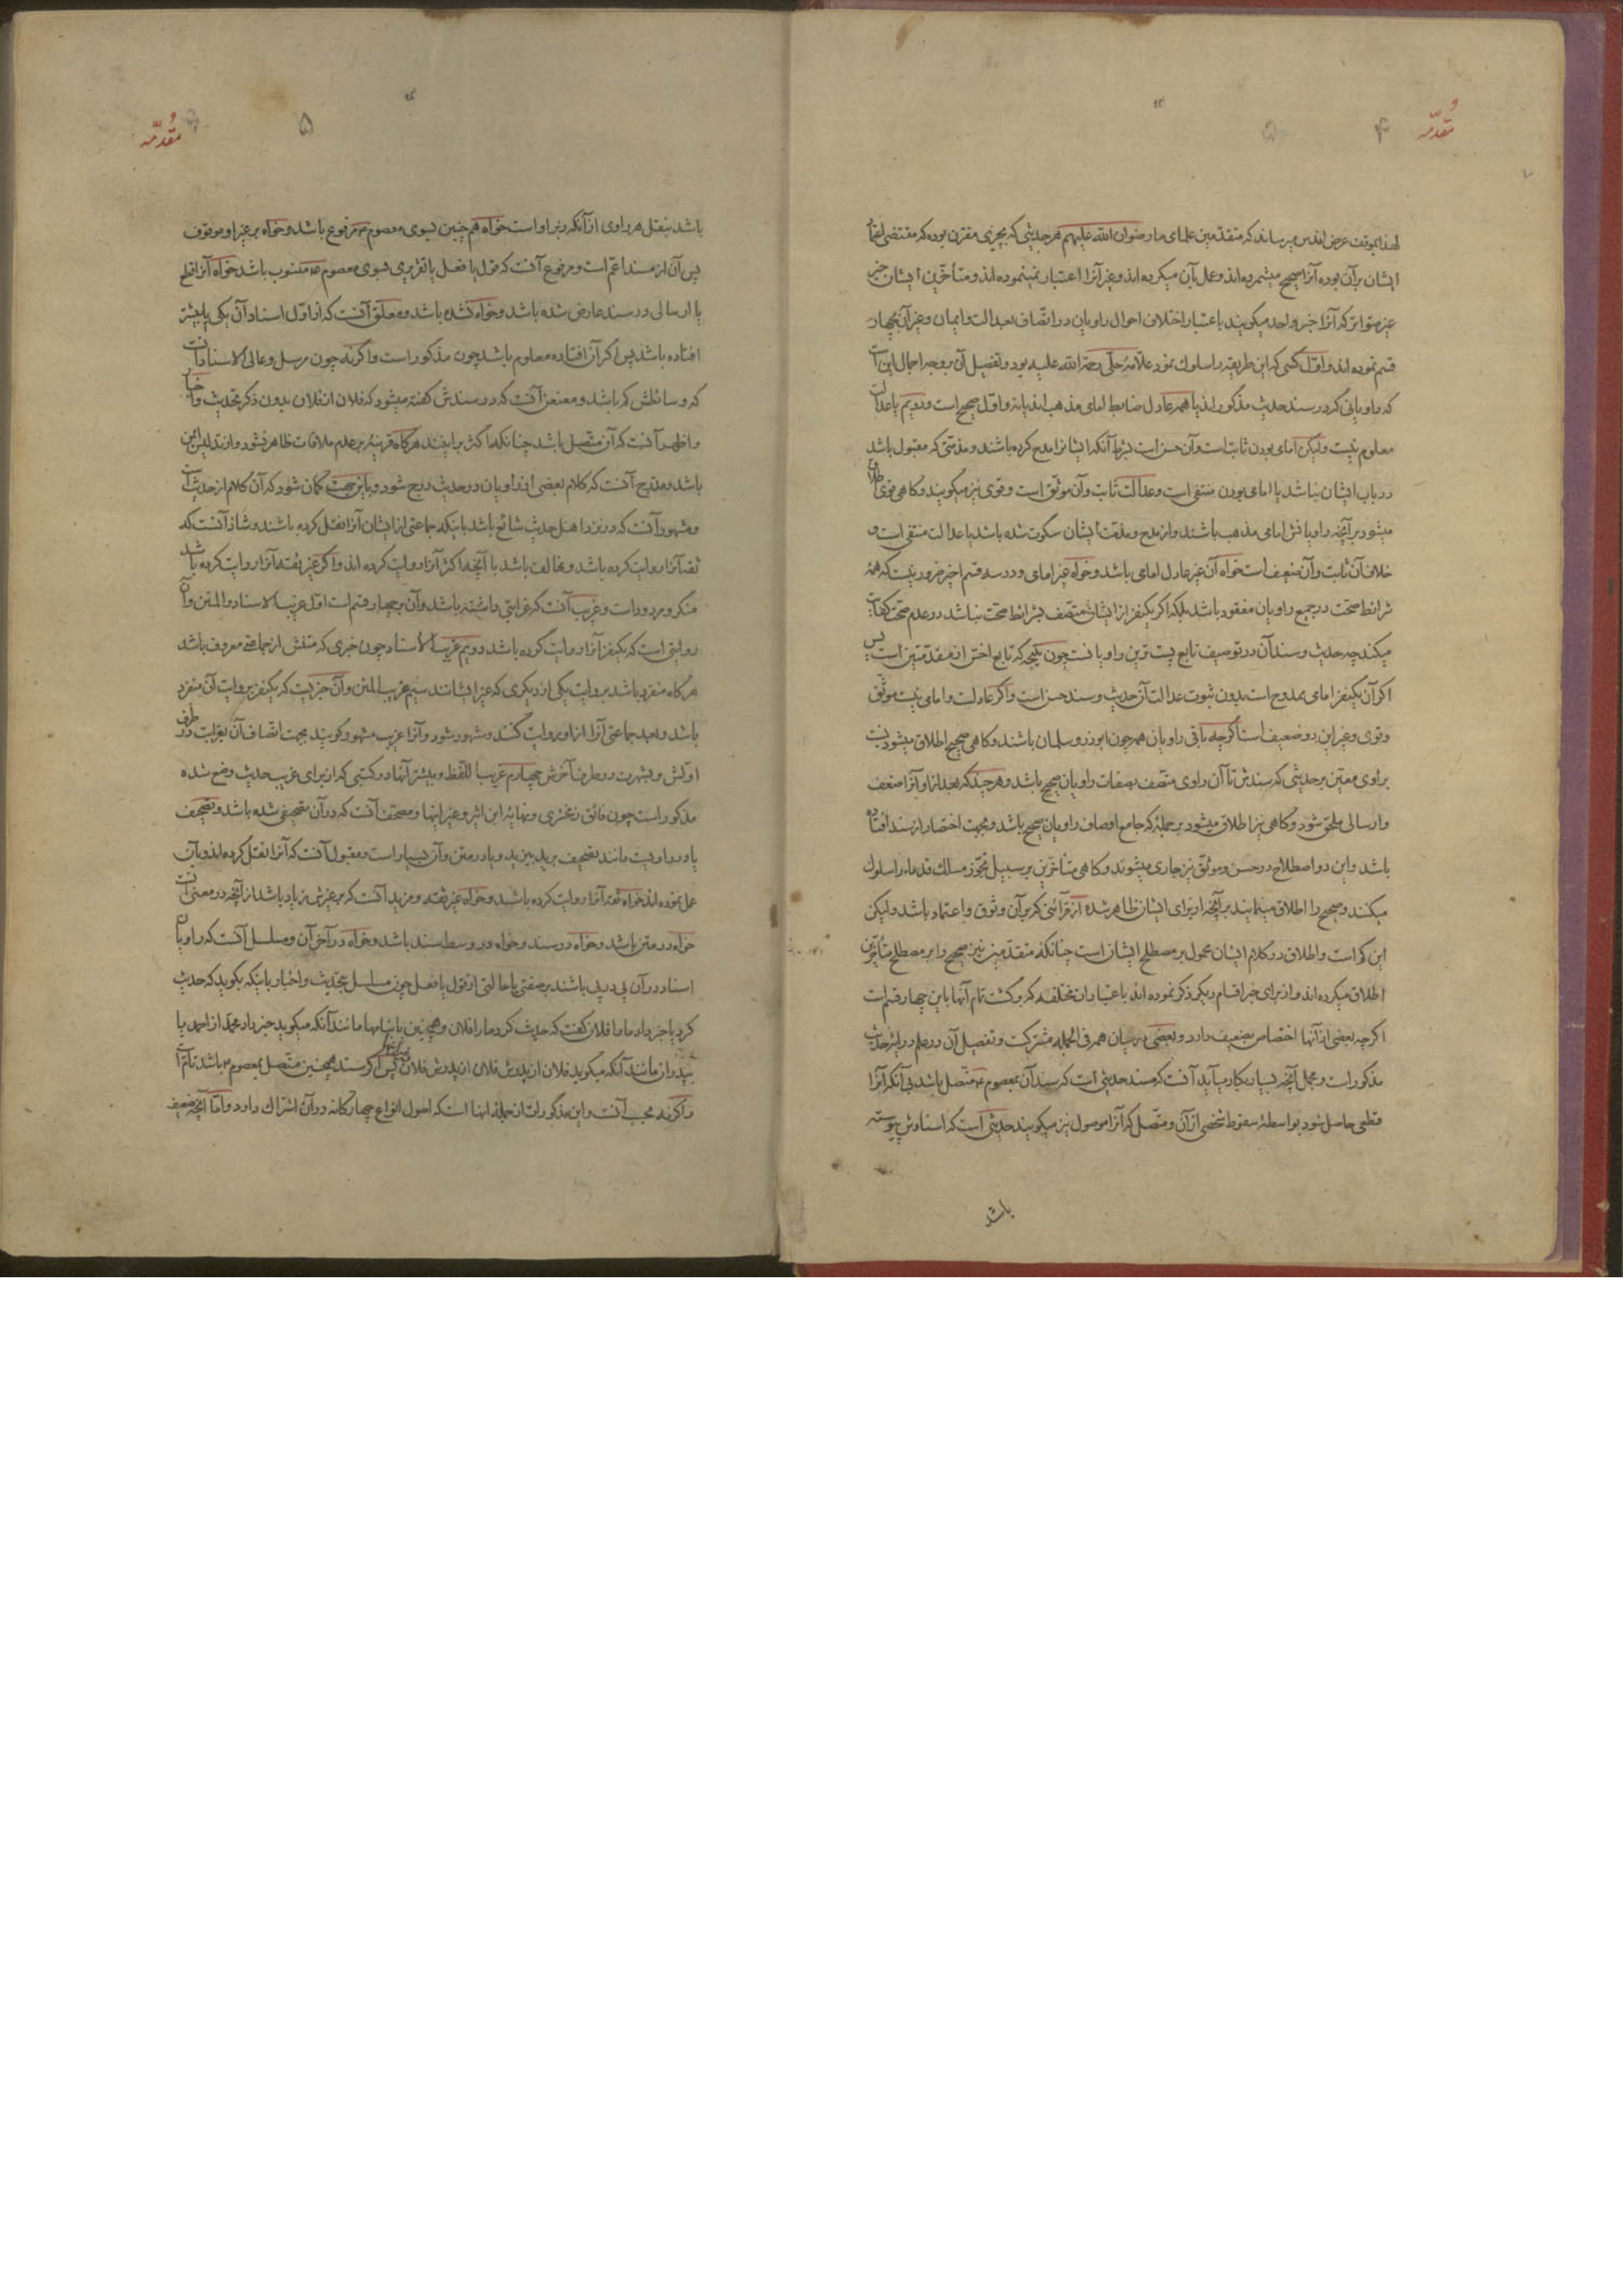 مقدمه
۴
لهذا بموقف عرض اقدس میرساند که متقدمین علمای ما رضوان الله علیهم هر حدیثی که بچیزی مقترن بوده که مقتضی اعتماد
ایشان بر آن بوده آنرا صحیح میشمرده‌اند و عمل بآن میکرده‌اند و غیر آنرا اعتبار نمینموده‌اند و متأخرین ایشان خبر
غیر متواتر که آنرا خبر واحد میگویند باعتبار اختلاف احوال راویان در اتصاف بعدالت و ایمان و غیر آن بچهار
قسم نموده‌اند و اوّل کسی که این طریقه را سلوک نمود علّامهٔ حلّی رحمة الله علیه بود و تفصیل آن بر وجه اجمال این است
که راویانی که در سند حدیث مذکورند یا همه عادل ضابط امامی مذهب‌اند یا نه و اوّل صحیح است و دویم یا عدالت
معلوم نیست ولیکن امامی بودن ثابت است و آن حسن است بشرط آنکه ایشانرا مدح کرده باشند و مذمتی که مقبول باشد
در باب ایشان نباشد یا امامی بودن منتفی است و عدالت ثابت و آن موثق است و قوی نیز میگویند و کاهی قوی اطلاق
میشود بر آنچه راویانش امامی مذهب باشند و از مدح و مذمت ایشان سکوت شده باشد یا عدالت منتفی است و
خلاف آن ثابت و آن ضعیف است خواه آن غیر عادل امامی باشد و خواه غیر امامی و در سه قسم اخیر ضرور نیست که همهٔ
شرائط صحّت در جمیع راویان مفقود باشد بلکه اکر یکنفر از ایشان متّصف بشرائط صحّت نباشد در عدم صحّت کفایت
میکند چه حدیث و سند آن در توصیف تابع پست ترین راویانست چون نتیجه که تابع اخسّ از مقدّمتین است پس
اکر آن یکنفر امامی ممدوح است بدون ثبوت عدالت آن حدیث و سند حسن است و اکر عادلست و امامی نیست موثّق
و قوی و غیر این دو ضعیف است اکرچه باقی راویان همه چون ابوذر و سلمان باشند و کاهی صحیح اطلاق میشود نسبت
براوی معیّن بر حدیثی که سندش تا آن راوی متّصف بصفات راویان صحیح باشد و هر چند که بعد از او آنرا ضعف
و ارسالی ملحق شود و کاهی نیز اطلاق میشود بر جملهٔ که جامع اوصاف راویان صحیح باشد و بجهت اختصار از سند افتاده
باشد و این دو اصطلاح در حسن و موثّق نیز جاری میشوند و کاهی متأخرین بر سبیل تجوّز مسلک قدما را سلوک
میکنند و صحیح را اطلاق مینمایند بر آنچه از برای ایشان ظاهر شده از قرائنی که بر آن وثوق و اعتماد باشد ولیکن
این کم است و اطلاق در کلام ایشان محمول بر مصطلح ایشان است چنانکه متقدّمین نیز صحیح را بر مصطلح متأخّرین
اطلاق میکرده‌اند و از برای خبر اقسام دیکر ذکر نموده‌اند باعتبارات مختلفه که برکشت تمام آنها باین چهار قسم است
اکرچه بعضی از آنها اختصاص بضعیف دارد و بعضی در میان همه فی الجمله مشترکست و تفصیل آن در علم درایهٔ حدیث
مذکور است و مجمل آنچه بسیار بکار می‌آید آنست که مسند حدیثی است که سند آن بمعصوم ع متّصل باشد بی آنکه آنرا
قطعی حاصل شود بواسطهٔ سقوط شخصی از آن و متّصل که آنرا موصول نیز میکویند حدیثی است که اسنادش پیوسته
باشد
مقدمه
۵
باشد بنقل هر راوی از آنکه زبر او است خواه هم چنین بسوی معصوم ع مرفوع باشد و خواه بر غیر او موقوف
پس آن از مسند اعمّ است و مرفوع آنست که قول یا فعل یا تقریری بسوی معصوم ع منسوب باشد خواه آنرا قطع
یا ارسالی در سند عارض شده باشد و خواه نشده باشد و معلّق آنست که از اوّل اسناد آن یکی یا بیشتر
افتاده باشد پس اکر آن افتاده معلوم باشد چون مذکور است و اکرنه چون مرسل و عالی الاسناد آنست
که وسائطش کم باشد و معنعن آنست که در سندش کفته میشود که فلان از فلان بدون ذکر تحدیث و اخبار
و اظهر آنست که آن متّصل باشد چنانکه اکثر بر اینند هرکاه قرینه بر عدم ملاقات ظاهر نشود و از تدلیس ایمن
باشد و مدرج آنست که کلام بعضی از راویان در حدیث درج شود و باین جهت کمان شود که آن کلام از حدیث است
و مشهور آنست که در نزد اهل حدیث شائع باشد باینکه جماعتی از ایشان آنرا نقل کرده باشند و شاذ آنست که
ثقه آنرا روایت کرده باشد و مخالف باشد با آنچه اکثر آنرا روایت کرده‌اند و اکر غیر ثقه آنرا روایت کرده باشد
منکر و مردود است و غریب آنست که غرابتی داشته باشد و آن بر چهار قسم است اوّل غریب الاسناد و المتن و آن
روایتی است که یکنفر آنرا روایت کرده باشد دویم غریب الاسناد چون خبری که متنش از جماعتی معروف باشد
هرکاه منفرد باشد بروایت یکی از دیکری که غیر ایشانند سیم غریب المتن و آن خبریست که یکنفر بروایت آن منفرد
باشد و بعد جماعتی آنرا از او روایت کنند و مشهور شود و آنرا غریب مشهور کویند بجهت اتّصاف آن بغرابت در طرف
اوّلش و بشهرت در طرف آخرش چهارم غریب اللّفظ و بیشتر آنها در کتبی که از برای غریب حدیث وضع شده
مذکور است چون فائق زمخشری و نهایهٔ ابن اثیر و غیر اینها و مصحّف آنست که در آن تصحیفی شده باشد و تصحیف
یا در راویست مانند تصحیف برید بیزید و یا در متن و آن بسیار است و مقبول آنست که آنرا نقل کرده‌اند و بآن
عمل نموده‌اند خواه ثقه آنرا روایت کرده باشد و خواه غیر ثقه و مزید آنست که بر غیرش زیاد باشد از آنچه در معنی آنست
خواه در متن باشد و خواه در سند و خواه در وسط سند باشد و خواه در آخر آن و مسلسل آنست که راویان
اسناد در آن پی در پی باشند بر صفتی یا حالتی از قول یا فعل چون مسلسل بتحدیث و اخبار باینکه بکوید که حدیث
کرد یا خبر داد ما را فلان کفت که حدیث کرد ما را فلان و همچنین یا بنامها مانند آنکه میکوید خبر داد محمد از احمد یا
بپدران مانند آنکه میکوید فلان از پدرش فلان از پدرش فلان پس اکر سند همچنین متّصل بمعصوم ع باشد تامّ است
و اکرنه بحسب آنست و این مذکورات از جملهٔ آنها است که اصول انواع چهارکانه در آن اشتراک دارد و امّا آنچه بضعیف